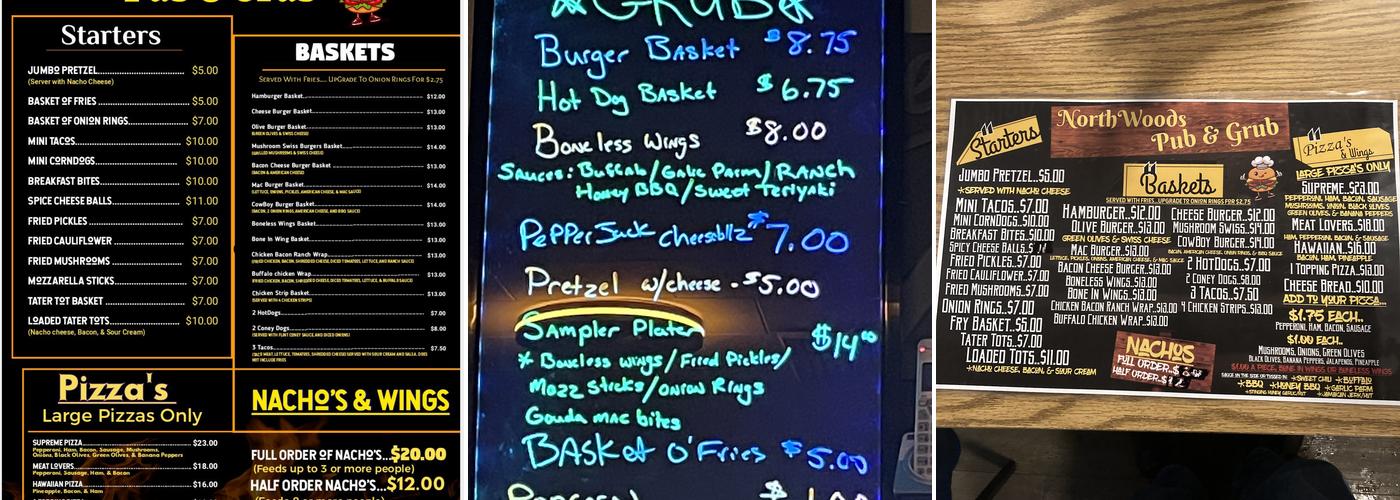 Starters
JUMBO PRETZEL $5.00
(Server with Nacho Cheese)
BASKET OF FRIES $5.00
BASKET OF ONION RINGS $7.00
MINI TACOS $10.00
MINI CORNDOGS $10.00
BREAKFAST BITES $10.00
SPICE CHEESE BALLS $11.00
FRIED PICKLES $7.00
FRIED CAULIFLOWER $7.00
FRIED MUSHROOMS $7.00
MOZZARELLA STICKS $7.00
TATER TOT BASKET $7.00
LOADED TATER TOTS $10.00
(Nacho cheese, Bacon, & Sour Cream)
BASKETS
SERVED WITH FRIES.... UPGRADE TO ONION RINGS FOR $2.75
Hamburger Basket $12.00
Cheese Burger Basket $13.00
Olive Burger Basket $13.00
(GREEN OLIVES & SWISS CHEESE)
Mushroom Swiss Burgers Basket $14.00
Bacon Cheese Burger Basket $13.00
(BACON & AMERICAN CHEESE)
Mac Burger Basket $14.00
(LETTUCE, ONIONS, PICKLES, AMERICAN CHEESE, & MAC SAUCE)
CowBoy Burger Basket $14.00
(BACON, 2 ONION RINGS, AMERICAN CHEESE, AND BBQ SAUCE)
Boneless Wings Basket $13.00
Bone In Wing Basket $13.00
Chicken Bacon Ranch Wrap $13.00
Buffalo chicken Wrap $13.00
Chicken Strip Basket $13.00
(SERVED WITH 4 CHICKEN STRIPS)
2 HotDogs $7.00
2 Coney Dogs $8.00
(SERVED WITH FLINT CONEY SAUCE, AND DICED ONIONS)
3 Tacos $7.50
Pizza's
Large Pizzas Only
SUPREME PIZZA $23.00
Pepperoni, Ham, Bacon, Sausage, Mushrooms,
Onions, Black Olives, Green Olives, & Banana Peppers
MEAT LOVERS $18.00
Pepperoni, Sausage, Ham, & Bacon
HAWAIIAN PIZZA $16.00
Pineapple, Bacon, & Ham
NACHO'S & WINGS
FULL ORDER OF NACHO'S...$20.00
(Feeds up to 3 or more people)
HALF ORDER NACHO'S...$12.00
GRUB
Burger Basket $8.75
Hot Dog Basket $6.75
Boneless Wings $8.00
Sauces: Buffalo/Galic Parm/RANCH
Honey BBQ/Sweet Teriyaki
PePPerJack cheesebllz $7.00
Pretzel w/cheese - $5.00
Sampler Plater $14.00
* Boneless wings/Fried Pickles/
Mozz Sticks/Onion Rings
Gouda mac bites
BASket O'Fries $5.00
NorthWoods
Pub & Grub
Starters
JUMBO PRETZEL..$5.00
*SERVED WITH NACHO CHEESE
MINI TACOS..$7.00
MINI CORNDOGS..$10.00
BREAKFAST BITES..$10.00
SPICY CHEESE BALLS..$
FRIED PICKLES..$7.00
FRIED CAULIFLOWER..$7.00
FRIED MUSHROOMS..$7.00
ONION RINGS..$7.00
FRY BASKET..$5.00
TATER TOTS..$7.00
LOADED TOTS..$11.00
*NACHO CHEESE, BACON, & SOUR CREAM
Baskets
SERVED WITH FRIES...UPGRADE TO ONION RINGS FOR $2.75
HAMBURGER..$12.00
OLIVE BURGER..$13.00
GREEN OLIVES & SWISS CHEESE
MAC BURGER..$13.00
LETTUCE, PICKLES, ONIONS, AMERICAN CHEESE, & MAC SAUCE
BACON CHEESE BURGER..$13.00
BONELESS WINGS..$13.00
BONE IN WINGS..$13.00
CHICKEN BACON RANCH WRAP..$13.00
BUFFALO CHICKEN WRAP..$13.00
CHEESE BURGER..$12.00
MUSHROOM SWISS..$14.00
COWBOY BURGER..$14.00
BACON, AMERICAN CHEESE, ONION RINGS, & BBQ SAUCE
2 HOTDOGS..$7.00
2 CONEY DOGS..$8.00
3 TACOS..$7.50
4 CHICKEN STRIPS..$13.00
NACHOS
FULL ORDER..$
HALF ORDER..$12
Pizza's
& Wings
LARGE PIZZA'S ONLY
SUPREME..$23.00
PEPPERONI, HAM, BACON, SAUSAGE
MUSHROOMS, ONION, BLACK OLIVES
GREEN OLIVES, & BANANA PEPPERS
MEAT LOVERS..$18.00
HAM, PEPPERONI, BACON, & SAUSAGE
HAWAIIAN..$16.00
BACON, HAM, PINEAPPLE
1 TOPPING PIZZA..$13.00
CHEESE BREAD..$10.00
ADD TO YOUR PIZZA...
$1.75 EACH..
PEPPERONI, HAM, BACON, SAUSAGE
$1.00 EACH..
MUSHROOMS, ONIONS, GREEN OLIVES
BLACK OLIVES, BANANA PEPPERS, JALAPENOS, PINEAPPLE
$1.00 A PIECE, BONE IN WINGS OR BONELESS WINGS
SAUCE ON THE SIDE OR TOSSED IN *SWEET CHILI *BUFFALO
*BBQ *HONEY BBQ *GARLIC PARM
*STINGING HONEY GARLIC/HOT *JAMAICAN JERK/HOT